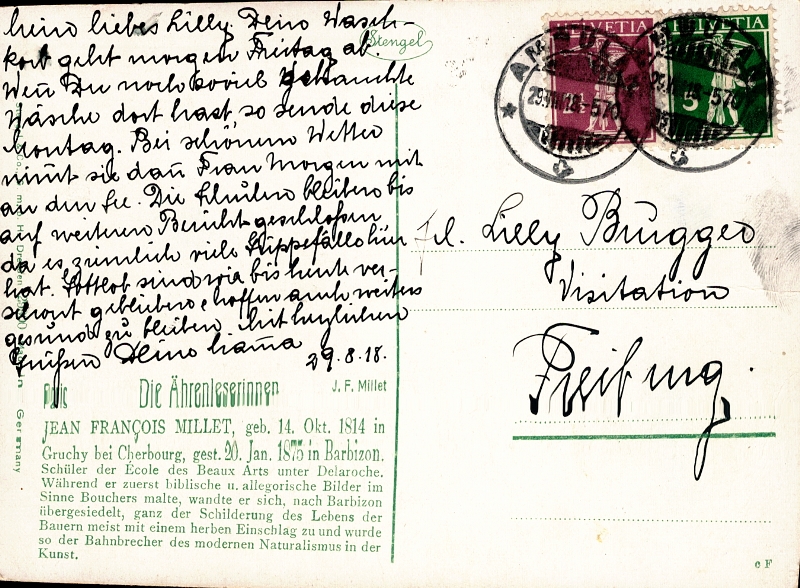 Mein liebes Lilly. Dein Wasch-
korb geht morgen Freitag ab.
Wen Du noch soviel gebrauchte
Wäsche dort hast, so sende diese
Montag. Bei schönem Wetter
nimt sie dan Frau Morgen mit
an den See. Die Schulen bleiben bis
auf weiteren Bericht geschlossen
da es ziemlich viele Grippefälle hier
hat. Gottlob sind wir bis heute ver-
schont geblieben & hoffen auch weiters
gesund zu bleiben. Mit herzlichen
Grüßen Deine Mama
29.8.18.
Stengel
HELVETIA
HELVETIA
5
Frl. Lilly Brugger
Visitation
Freiburg.
Paris Die Ährenleserinnen J. F. Millet
JEAN FRANÇOIS MILLET, geb. 14. Okt. 1814 in
Gruchy bei Cherbourg, gest. 20. Jan. 1875 in Barbizon.
Schüler der École des Beaux Arts unter Delaroche.
Während er zuerst biblische u. allegorische Bilder im
Sinne Bouchers malte, wandte er sich, nach Barbizon
übergesiedelt, ganz der Schilderung des Lebens der
Bauern meist mit einem herben Einschlag zu und wurde
so der Bahnbrecher des modernen Naturalismus in der
Kunst.
Germany
c F